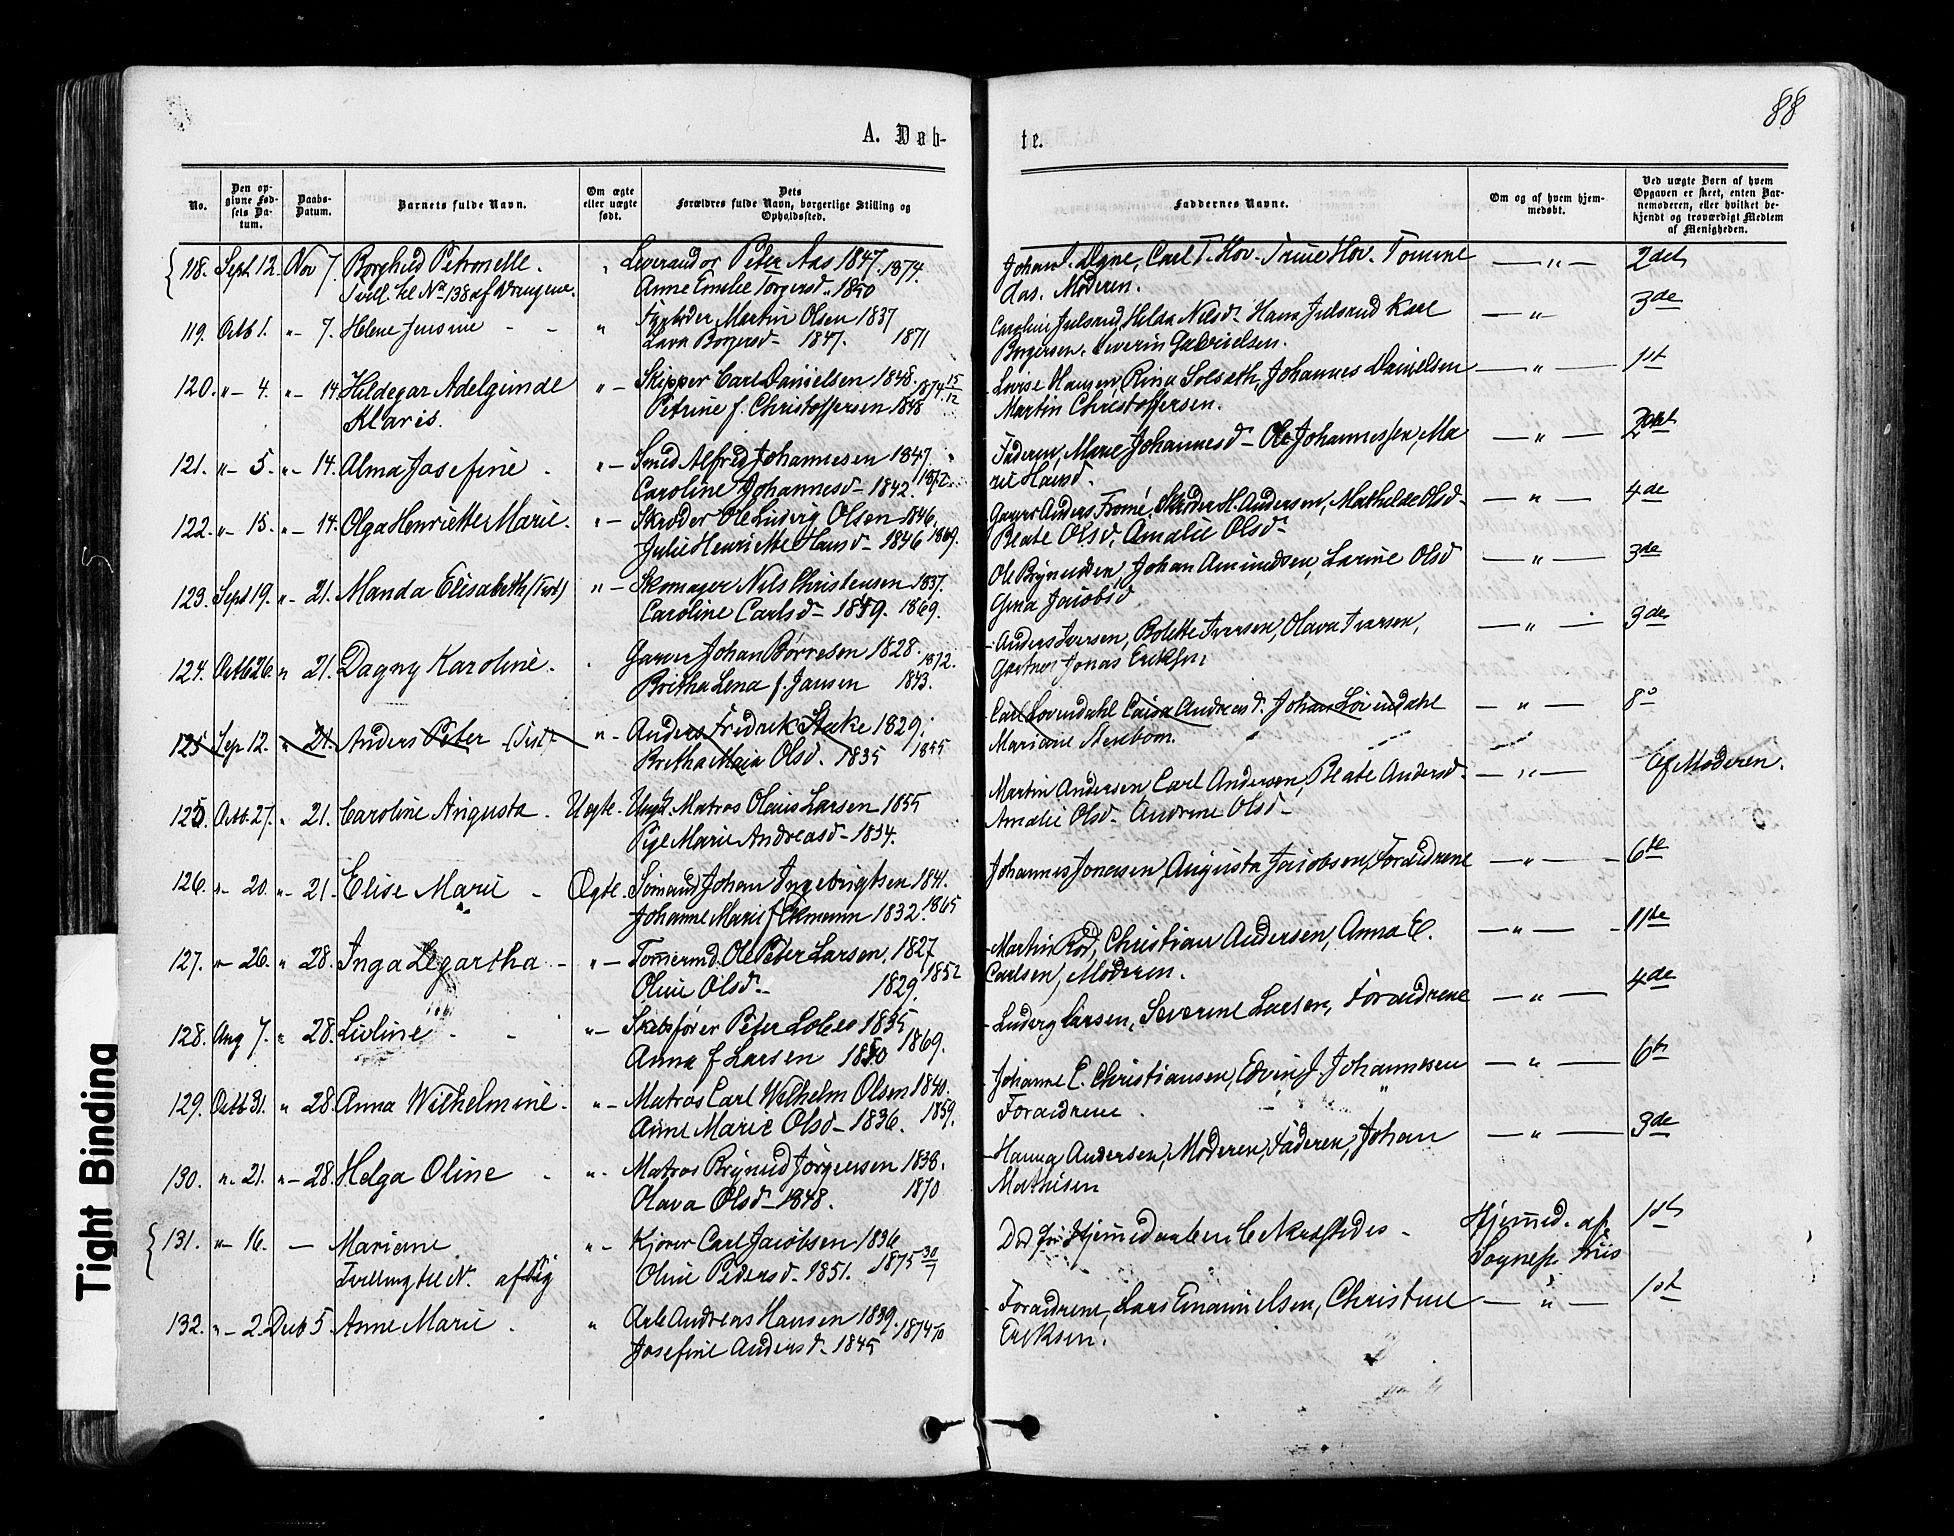 88
A. Døb-
te.
No.
Den opgivne Fødsels Datum.
Daabs-Datum.
Barnets fulde Navn.
Om ægte eller uægte født.
Dets Forældres fulde Navn, borgerlige Stilling og Opholdssted.
Faddernes Navne.
Om og af hvem hjemmedøbt.
Ved uægte Børn af hvem Opgaven er skeet, enten Barnemoderen, eller hvilket bekjendt og troværdigt Medlem af Menigheden.
118. Sept 12. Nov 7. Borghild Petronelle. " Leverandør Peter Aas 1847. 1874.
Tvill. til No 138 af Drengene. Anne Emelie Torgersd. 1850
Johan Dyne, Carl T. Hov. Trine Hov. Tomine — " — 2det
Aas. Moderen.
119. Octb 1. " 7. Helene Jensine - - " Martin Olsen 1837
Lava Borgersd - 1847. 1871
Caroline Julsrud, Hilda Nilsd. Hans Julsrud Karl — " 3de
Borgersen. Severin Gabrielsen.
120. " - 4. " - 14 Hildegar Adelgunde " - Skipper Carl Danielsen 1848. 1874 15/12
Klaris. Petrine f. Christoffersen 1848
Lovise Hansen, Rina Solsæth, Johannes Danielsen — " — 1st
Martin Christoffersen.
121. " - 5. " - 14. Alma Josefine - " - Smed Alfred Johannesen 1847.
Caroline Johannesd - 1842. 1872.
Faderen, Marie Johannesd - Ole Johannessen, Ma — " — 2det
rie Hansd.
122. " - 15. " - 14. Olga Henriette Marie. " - Skrædder Ole Ludvig Olsen 1846.
Julie Henriette Hansd - 1846 1869.
Garver Anders Fromé, Skræder H. Andersen, Mathilde Olsd - — " — 4de
Beate Olsd, Amalie Olsd -
123. Sept 19. " - 21. Manda Elisabeth " - Skomager Nils Christensen 1837.
Caroline Carlsd - 1849. 1869.
Ole Brynildsen, Johan Amundsen, Larine Olsd — " — 3de
Gina Jacobsd
124. Octb 26. " 21. Dagny Karoline. . Garver Johan Børresen 1828. 1872.
Britha Lena f. Jansen 1843.
Anders Iversen, Bolette Iversen, Olava Iversen, — " — 3de
Gartner Jonas Eriksen
125 Sep 12. " 21. Anders Peter " - Anders Fredrik Stake 1829.
Britha Maja Olsd. 1835 1855
Carl Løvendahl Caisa Andreasd. Johan Løvendahl — " — 8
Mariane Stenbom.
125. Octb. 27. " 21. Caroline Augusta. Uægte. Ungk. Matros Olaus Larsen 1855
Pige Marie Andreasd - 1834.
Martin Andersen, Carl Andersen, Beate Andersd. — " — Af Moderen.
Amalie Olsd - Andrine Olsd -
126. " - 20. " - 21. Elise Marie - Ægte. Sømand Johan Ingebrigtsen 1841.
Johanne Marie f. Ekmann 1832. 1865
Johannes Jonasen, Augusta Jacobsen, Forældrene — " — 6te
127. " 26. " 28. Inga Legartha - " - Tømmermd. Ole Peter Larsen. 1827
Oline Olsd - 1829. 1852
Martin Rød, Christian Andersen, Anna E. — " — 11te
Carlsen, Moderen.
128. Aug 7. " 28. Livline - - " - Skibsfører Peter 1835
Anna f Larsen 1850 1869.
Ludvig Larsen, Severine Larsen, Forældrene — " — 4de
129. Octb 31. " 28. Anna Wilhelmine. " - Matros Carl Wilhelm Olsen 1840.
Anne Marie Olsd - 1836. 1859.
Johanne C. Christiansen, Edvin J. Johannesen — " — 6te
Forældrene.
130. " - 21. " - 28. Helga Oline - " - Matros Brynild Jørgensen 1838.
Olava Olsd - 1848. 1870
Hanna Andersen, Moderen, Faderen, Johan — " — 3de
Mathisen
131. " - 16. — Mariane. " - Kjører Carl Jacobsen 1836
Tvilling til N. af Oline Pedersd - 1851. 1875 30/7
Død før Hjemmedaaben bekræftedes. Hjemmed. af 1st
Sognepr. Friis
132. " - 2. Decb 5. Anne Marie. " Arb. Andreas Hansen 1839.
Josefine Andersd - 1845
Forældrene, Lars Emanuelsen, Christine — " — 1st
Eriksen.
Tight Binding